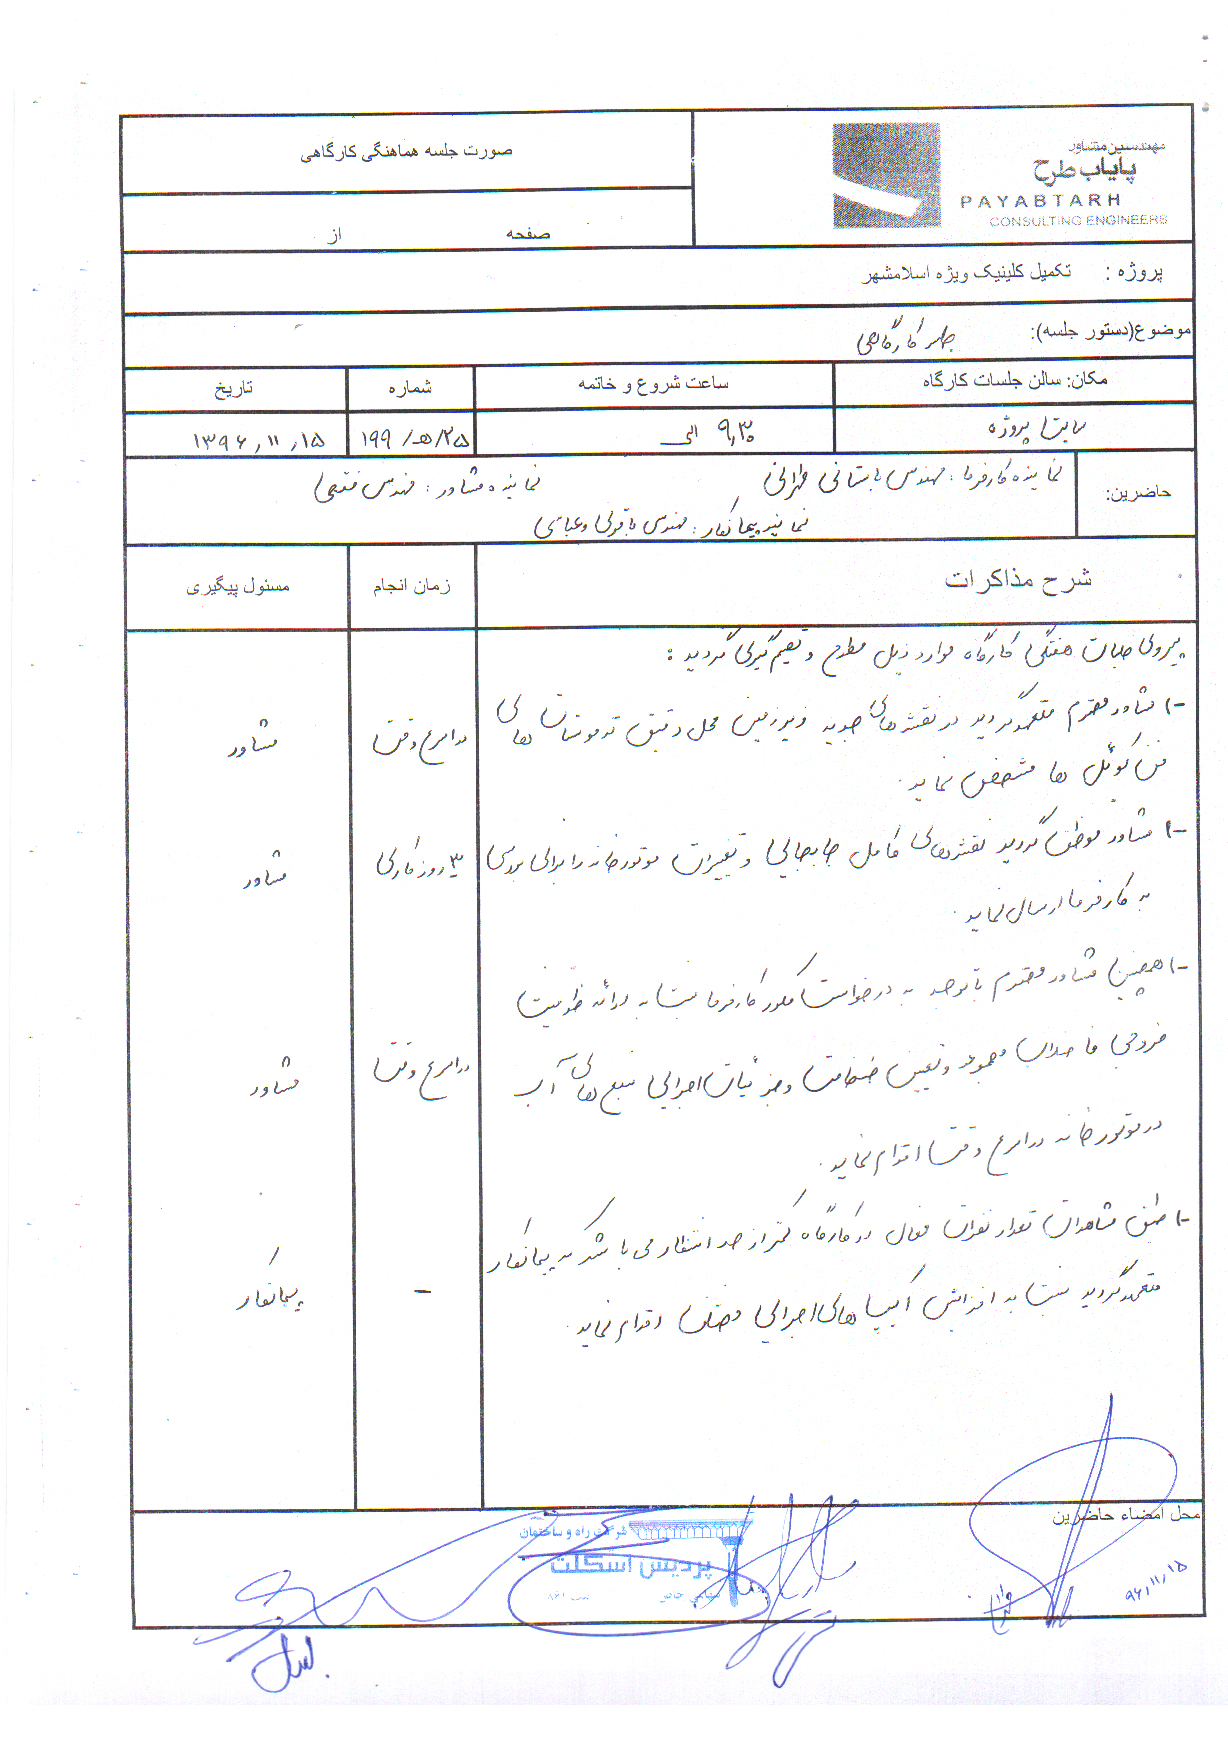 مهندسین مشاور
پایاب طرح
PAYABTARH
CONSULTING ENGINEERS
صورت جلسه هماهنگی کارگاهی
صفحه از
پروژه : تکمیل کلینیک ویژه اسلامشهر
موضوع(دستور جلسه): جلسه کارگاهی
مکان: سالن جلسات کارگاه ساعت شروع و خاتمه شماره تاریخ
سایت پروژه ۹٫۳۰ الی ۱۹۹/ه/۲۵ ۱۳۹۶٫۱۱٫۱۵
حاضرین: نماینده کارفرما : مهندس باستانی تهرانی نماینده مشاور : مهندس
نماینده پیمانکار : مهندس و عباسی
شرح مذاکرات زمان انجام مسئول پیگیری
پیروی جلسات هفتگی کارگاه موارد ذیل مطرح و تصمیم گیری گردید :
۱- مشاور محترم متعهد گردید در نقشه های جدید زیرزمین محل دقیق ترموستات های در اسرع وقت مشاور
فن کوئل ها مشخص نماید.
۱- مشاور موظف گردید نقشه های کامل جابجایی و تغییرات موتورخانه را برای بررسی ۳ روز کاری مشاور
به کارفرما ارسال نماید.
۱- همچنین مشاور محترم با توجه به درخواست مکرر کارفرما نسبت به ارائه ظرفیت
خروجی فاضلاب مجموعه و تعیین ضخامت و جزئیات اجرایی منبع های آب در اسرع وقت مشاور
در موتورخانه در اسرع وقت اقدام نماید.
۱- طبق مشاهدات تعداد نفرات فعال در کارگاه کمتر از حد انتظار می باشد که پیمانکار
متعهد گردید نسبت به افزایش اکیپ های اجرایی اقدام نماید. - پیمانکار
محل امضاء حاضرین
۹۶٫۱۱٫۱۵
شرکت راه و ساختمان
پردیس اسکلت